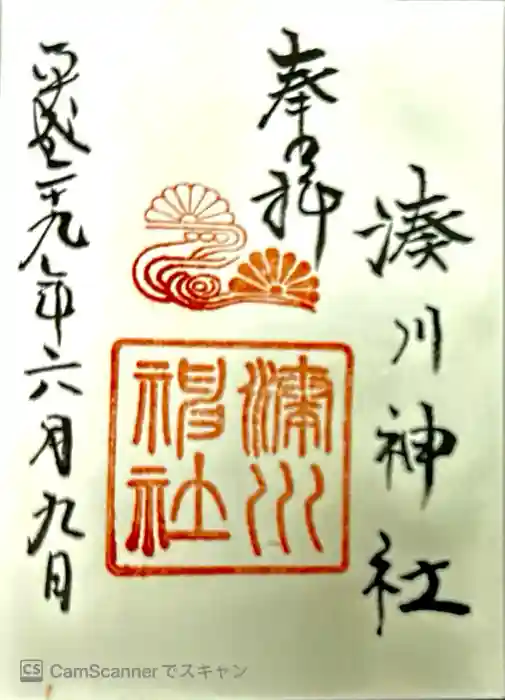 湊川神社
奉拝
湊川
神社
平成二十九年六月九日
CS CamScannerでスキャン